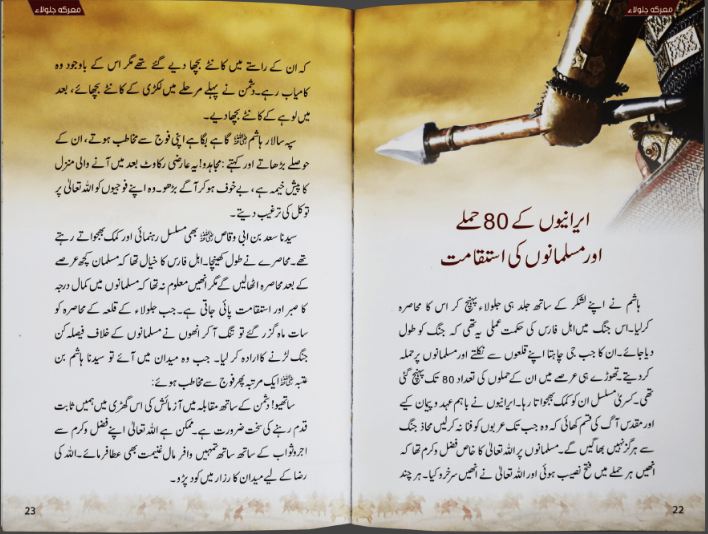 معرکہ جلولاء
ایرانیوں کے 80 حملے
اور مسلمانوں کی استقامت
ہاشم نے اپنے لشکر کے ساتھ جلد ہی جلولاء پہنچ کر اس کا محاصرہ
کرلیا۔ اس جنگ میں اہل فارس کی حکمت عملی یہ تھی کہ جنگ کو طول
دیا جائے۔ ان کا جب جی چاہتا اپنے قلعوں سے نکلتے اور مسلمانوں پر حملہ
کر دیتے۔ تھوڑے ہی عرصے میں ان کے حملوں کی تعداد 80 تک پہنچ گئی
تھی۔ کسریٰ مسلسل ان کو کمک بھجواتا رہا۔ ایرانیوں نے باہم عہد و پیمان کیے
اور مقدس آگ کی قسم کھائی کہ وہ جب تک عربوں کو فنا نہ کرلیں محاذ جنگ
سے ہرگز نہیں بھاگیں گے۔ مسلمانوں پر اللہ تعالیٰ کا خاص فضل و کرم تھا کہ
انھیں ہر حملے میں فتح نصیب ہوئی اور اللہ تعالیٰ نے انھیں سرخرو کیا۔ ہر چند
22
معرکہ جلولاء
کہ ان کے راستے میں کانٹے بچھا دیے گئے تھے مگر اس کے باوجود وہ
کامیاب رہے۔ دشمن نے پہلے مرحلے میں لکڑی کے کانٹے بچھائے، بعد
میں لوہے کے کانٹے بچھا دیے۔
سپہ سالار ہاشم رضی اللہ عنہ گاہے بگاہے اپنی فوج سے مخاطب ہوتے، ان کے
حوصلے بڑھاتے اور کہتے: مجاہدو! یہ عارضی رکاوٹ بعد میں آنے والی منزل
کا پیش خیمہ ہے، بے خوف ہو کر آگے بڑھو۔ وہ اپنے فوجیوں کو اللہ تعالیٰ پر
توکل کی ترغیب دیتے۔
سیدنا سعد بن ابی وقاص رضی اللہ عنہ بھی مسلسل رہنمائی اور کمک بھجواتے رہتے
تھے۔ محاصرے نے طول کھینچا۔ اہل فارس کا خیال تھا کہ مسلمان کچھ عرصے
کے بعد محاصرہ اٹھالیں گے مگر انھیں معلوم نہ تھا کہ مسلمانوں میں کمال درجہ
کا صبر اور استقامت پائی جاتی ہے۔ جب جلولاء کے قلعہ کے محاصرہ کو
سات ماہ گزر گئے تو تنگ آ کر انھوں نے مسلمانوں کے خلاف فیصلہ کن
جنگ لڑنے کا ارادہ کر لیا۔ جب وہ میدان میں آئے تو سیدنا ہاشم بن
عتبہ رضی اللہ عنہ ایک مرتبہ پھر فوج سے مخاطب ہوئے:
ساتھیو! دشمن کے ساتھ مقابلہ میں آزمائش کی اس گھڑی میں ہمیں ثابت
قدم رہنے کی سخت ضرورت ہے۔ ممکن ہے اللہ تعالیٰ اپنے فضل و کرم سے
اجر و ثواب کے ساتھ ساتھ تمہیں وافر مال غنیمت بھی عطا فرمائے۔ اللہ کی
رضا کے لیے میدان کارزار میں کود پڑو۔
23